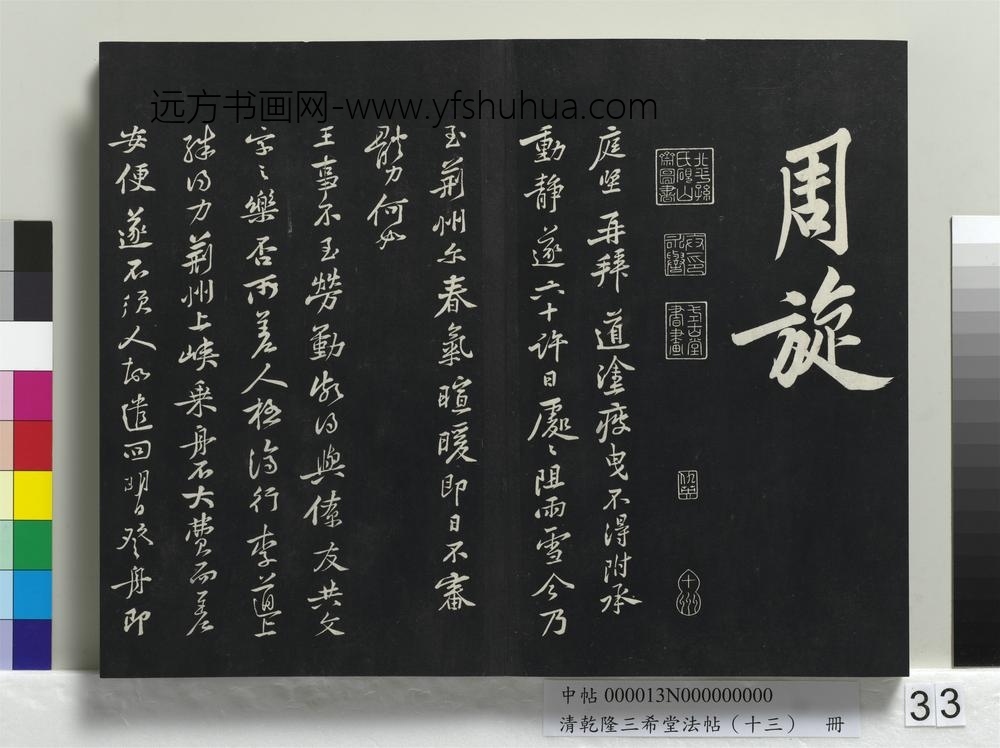 周旋
北平孫氏硯山齋圖書
式古堂書畫
仇英
十州
庭堅再拜道塗疲曳不得附承
動靜遂六十許日處〻阻雨雪今乃
至荊州尔春氣暄暖即日不審
體力何如
王事不至勞勤頗得與僚友共文
字之樂否所差人極濟行李道上
殊得力荊州上峽乘舟不大費而差
安便遂不須人故遣回明日登舟即
远方书画网-www.yfshuhua.com
中帖 000013N000000000
清乾隆三希堂法帖（十三） 冊
33